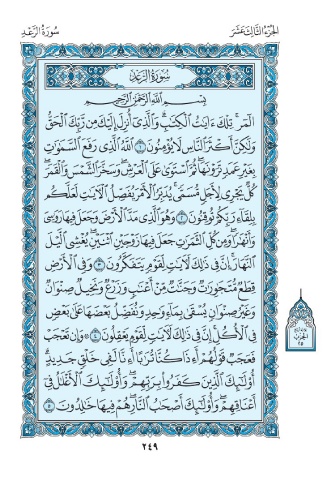 الجزء الثالث عشر
سورة الرعد
سورة الرعد
بسم الله الرحمن الرحيم
الٓمٓرۚ تِلۡكَ ءَايَٰتُ ٱلۡكِتَٰبِۗ وَٱلَّذِيٓ أُنزِلَ إِلَيۡكَ مِن رَّبِّكَ ٱلۡحَقُّ
وَلَٰكِنَّ أَكۡثَرَ ٱلنَّاسِ لَا يُؤۡمِنُونَ ١ ٱللَّهُ ٱلَّذِي رَفَعَ ٱلسَّمَٰوَٰتِ
بِغَيۡرِ عَمَدٖ تَرَوۡنَهَاۖ ثُمَّ ٱسۡتَوَىٰ عَلَى ٱلۡعَرۡشِۖ وَسَخَّرَ ٱلشَّمۡسَ وَٱلۡقَمَرَۖ
كُلّٞ يَجۡرِي لِأَجَلٖ مُّسَمّٗىۚ يُدَبِّرُ ٱلۡأَمۡرَ يُفَصِّلُ ٱلۡأٓيَٰتِ لَعَلَّكُم
بِلِقَآءِ رَبِّكُمۡ تُوقِنُونَ ٢ وَهُوَ ٱلَّذِي مَدَّ ٱلۡأَرۡضَ وَجَعَلَ فِيهَا رَوَٰسِيَ
وَأَنۡهَٰرٗاۖ وَمِن كُلِّ ٱلثَّمَرَٰتِ جَعَلَ فِيهَا زَوۡجَيۡنِ ٱثۡنَيۡنِۖ يُغۡشِي ٱلَّيۡلَ
ٱلنَّهَارَۚ إِنَّ فِي ذَٰلِكَ لَأٓيَٰتٖ لِّقَوۡمٖ يَتَفَكَّرُونَ ٣ وَفِي ٱلۡأَرۡضِ
قِطَعٞ مُّتَجَٰوِرَٰتٞ وَجَنَّٰتٞ مِّنۡ أَعۡنَٰبٖ وَزَرۡعٞ وَنَخِيلٞ صِنۡوَانٞ
وَغَيۡرُ صِنۡوَانٖ يُسۡقَىٰ بِمَآءٖ وَٰحِدٖ وَنُفَضِّلُ بَعۡضَهَا عَلَىٰ بَعۡضٖ
فِي ٱلۡأُكُلِۚ إِنَّ فِي ذَٰلِكَ لَأٓيَٰتٖ لِّقَوۡمٖ يَعۡقِلُونَ ٤ ۞ وَإِن تَعۡجَبۡ
فَعَجَبٞ قَوۡلُهُمۡ أَءِذَا كُنَّا تُرَٰبًا أَءِنَّا لَفِي خَلۡقٖ جَدِيدٍۗ
أُوْلَٰٓئِكَ ٱلَّذِينَ كَفَرُواْ بِرَبِّهِمۡۖ وَأُوْلَٰٓئِكَ ٱلۡأَغۡلَٰلُ فِيٓ
أَعۡنَاقِهِمۡۖ وَأُوْلَٰٓئِكَ أَصۡحَٰبُ ٱلنَّارِۖ هُمۡ فِيهَا خَٰلِدُونَ ٥
٢٤٩